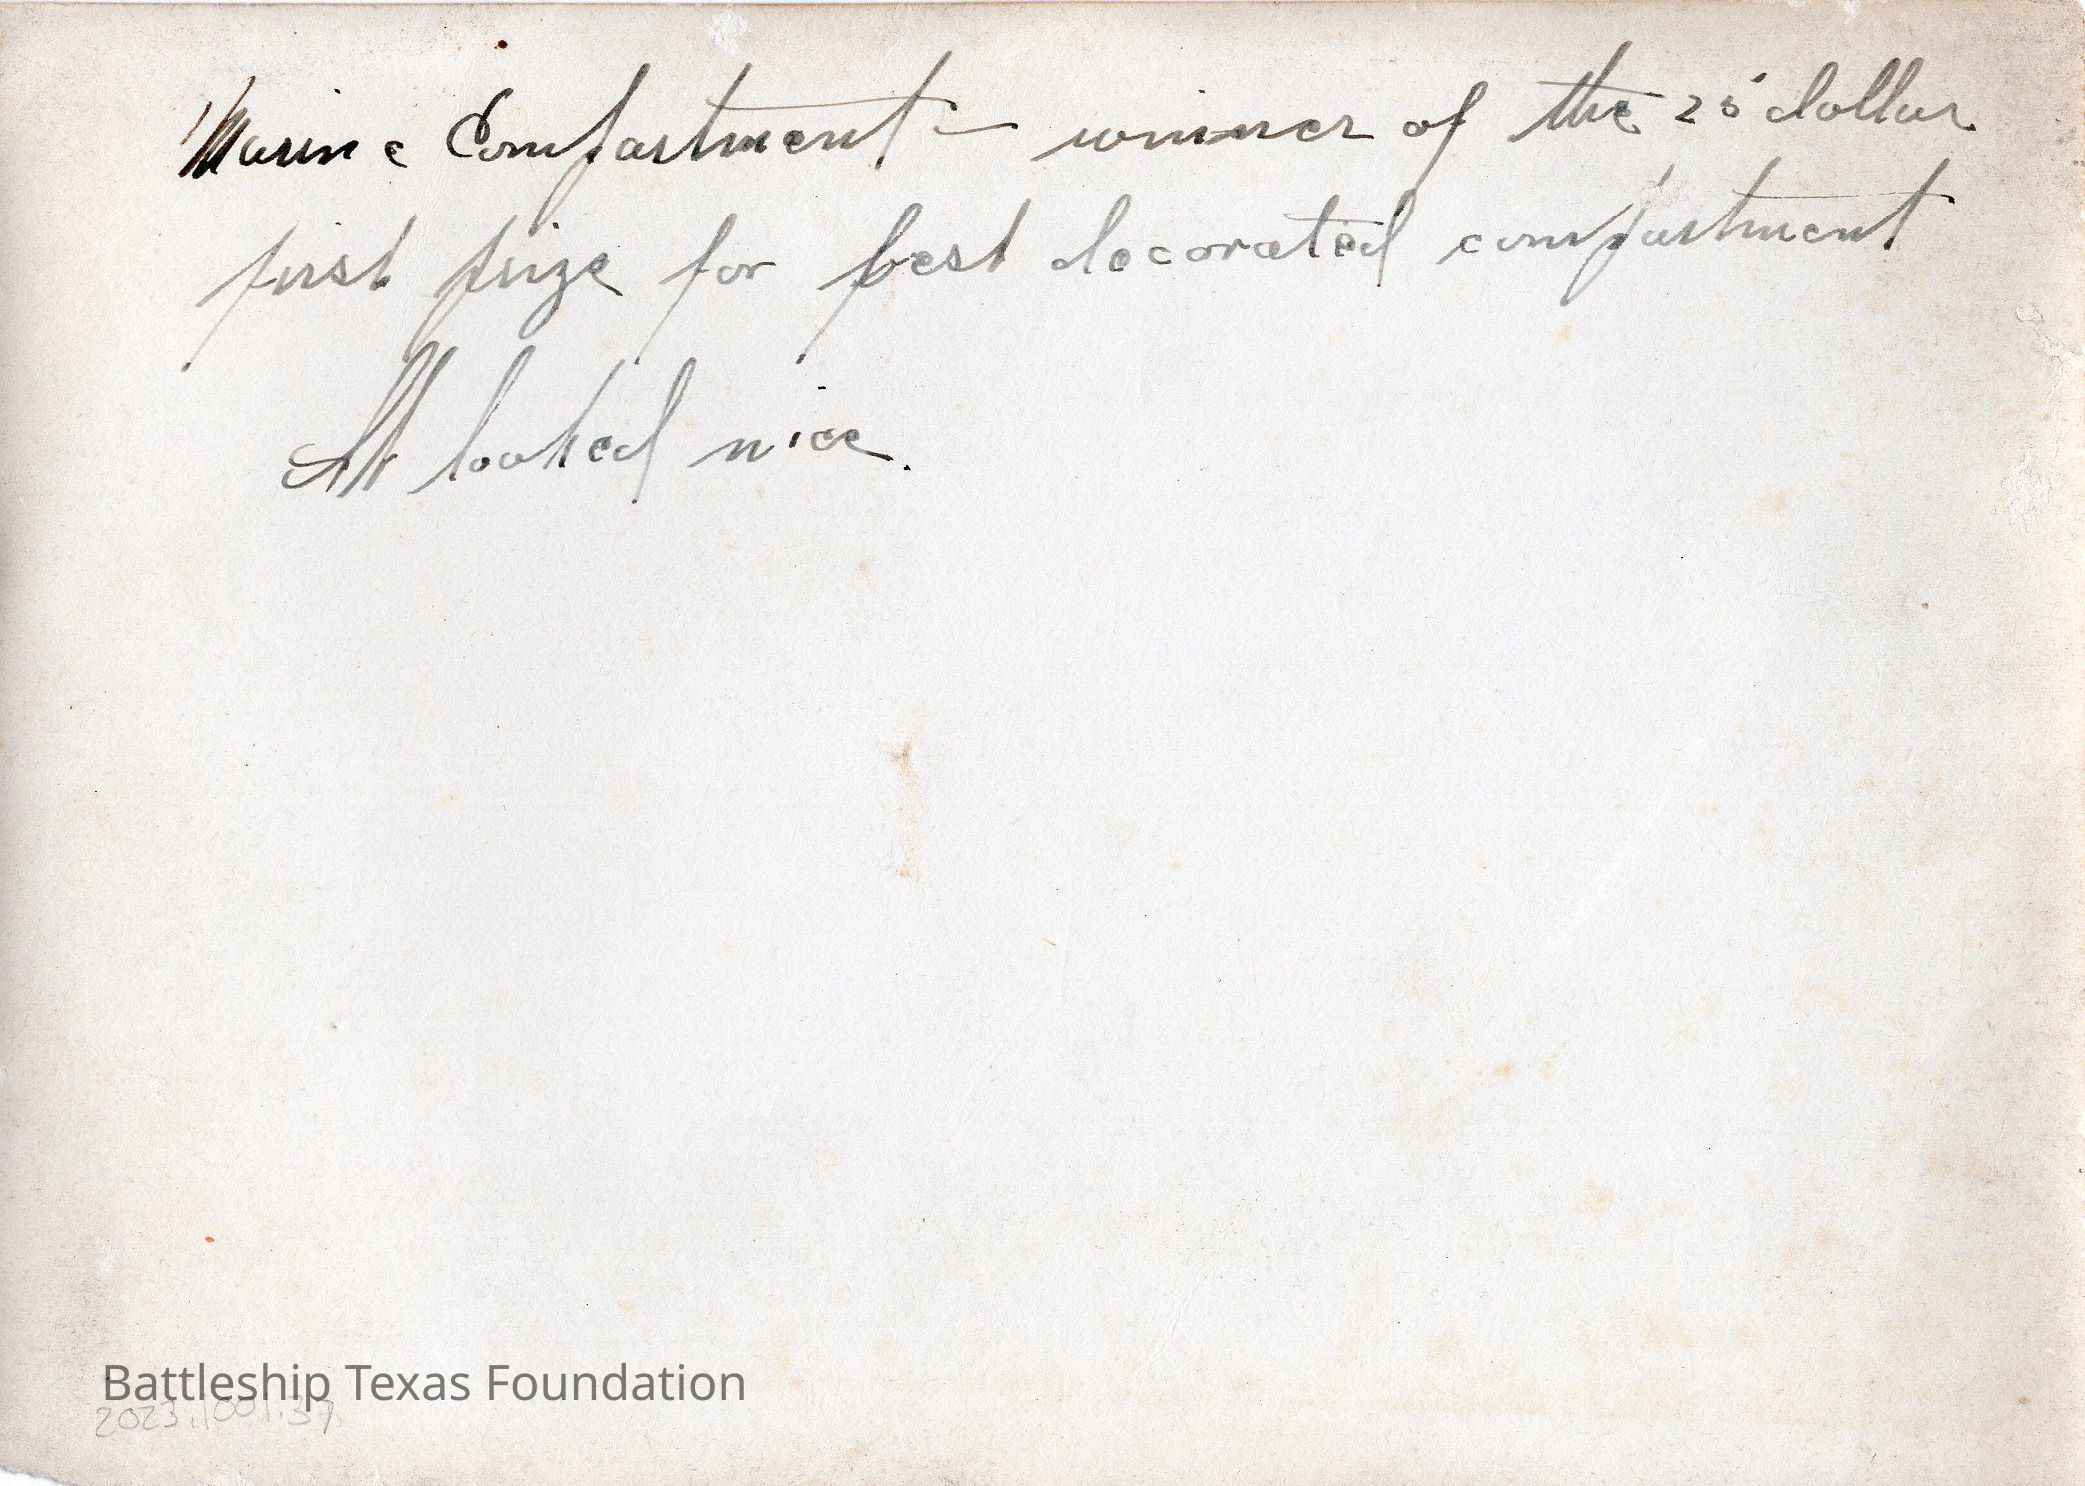 Marine Compartment - winner of the 25 dollar
first prize for best decorated compartment
It looked nice.
Battleship Texas Foundation
2023.1001.37